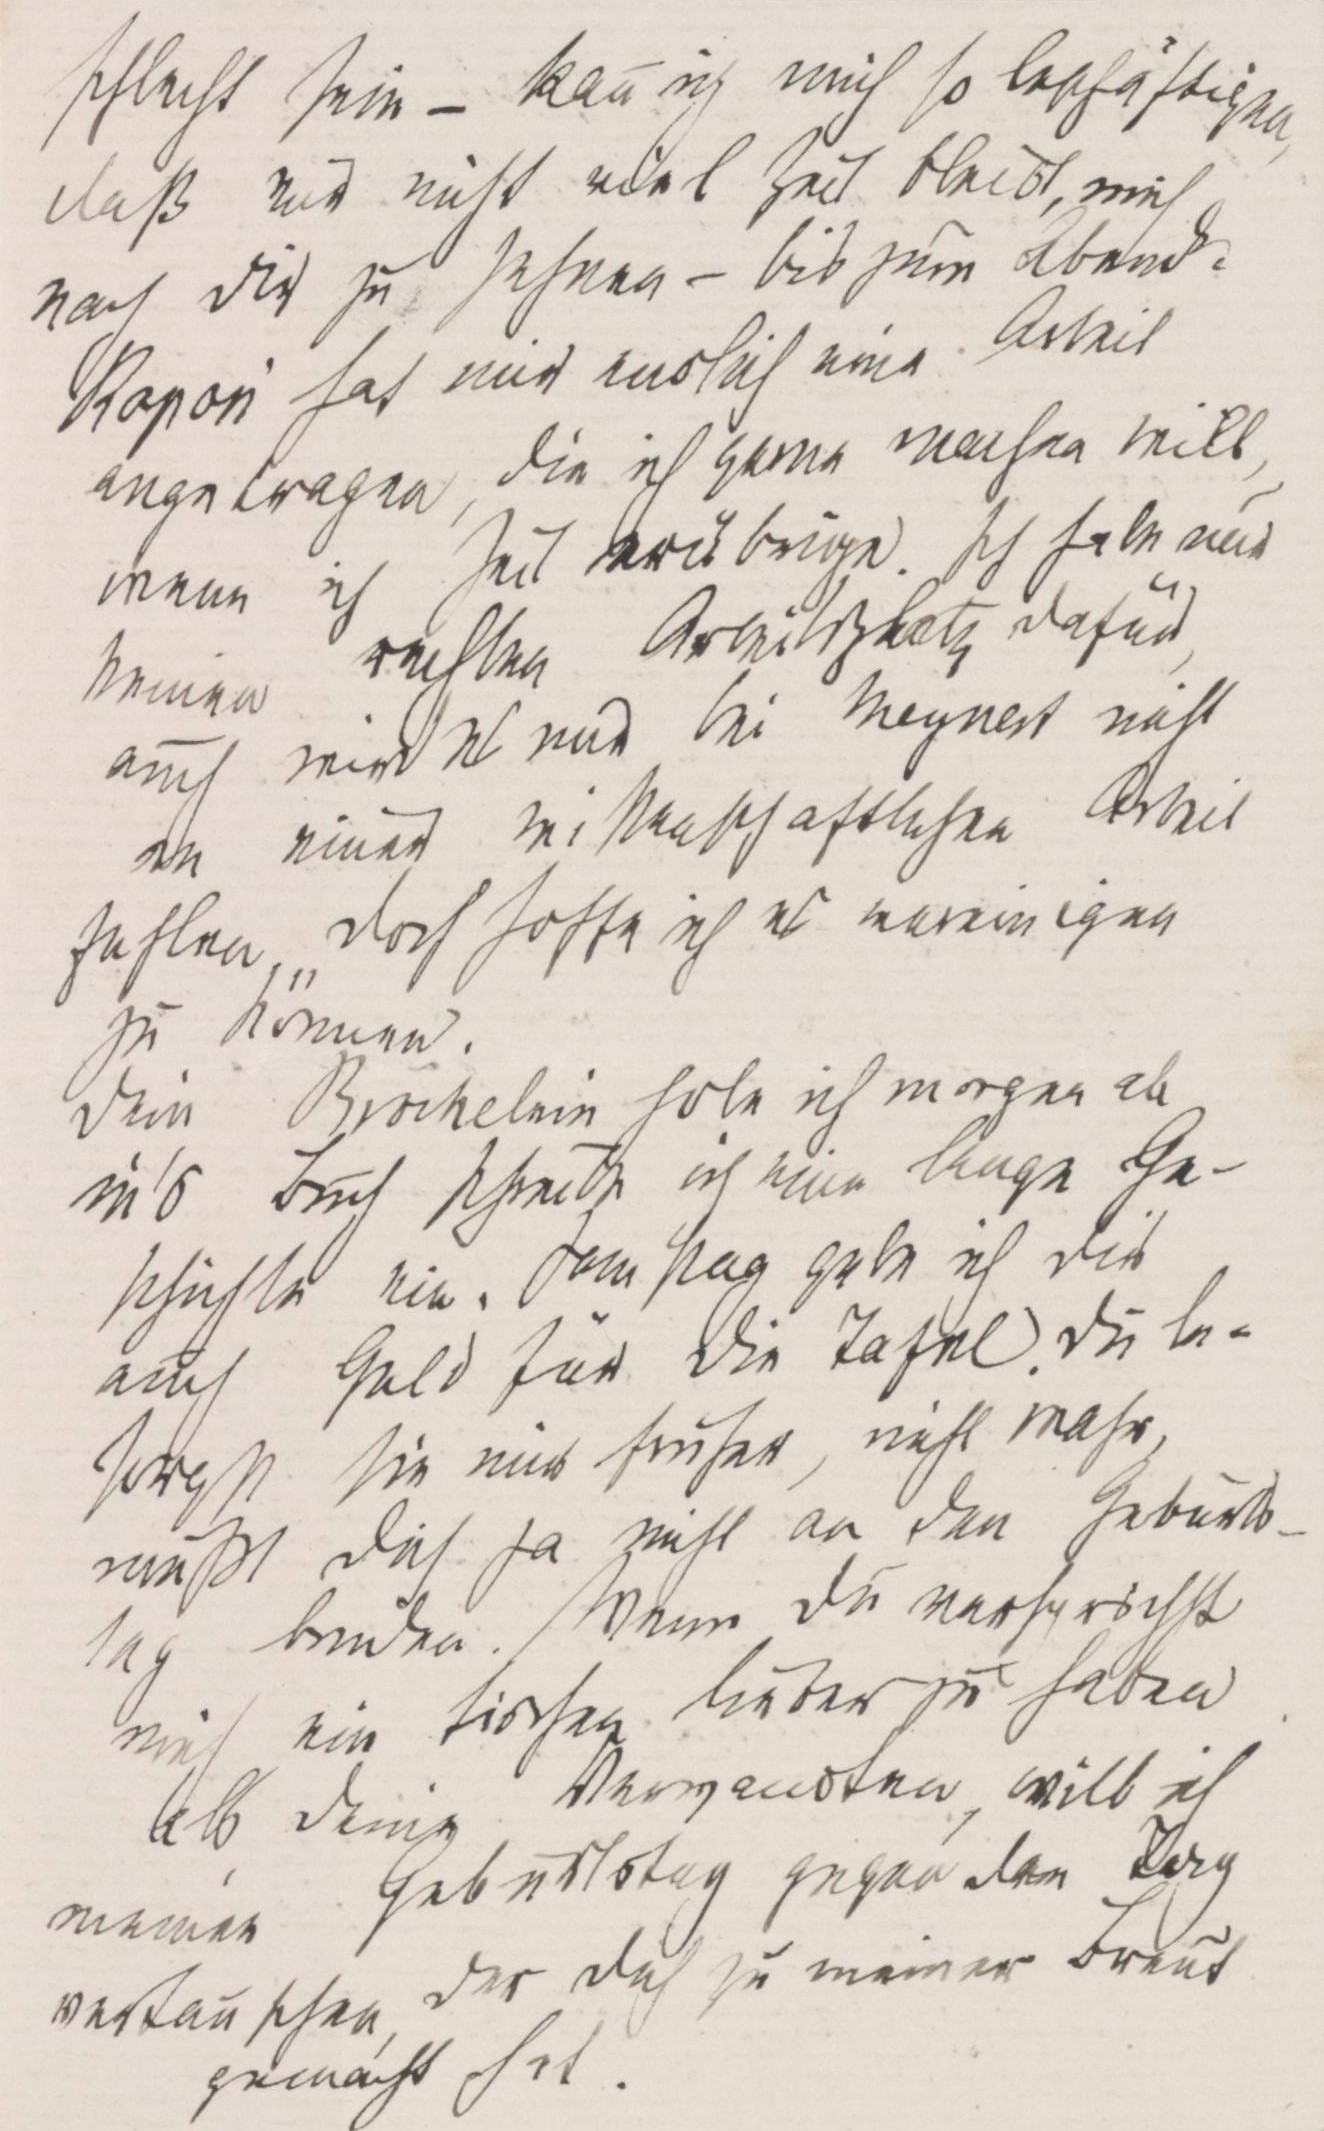 schlecht sein – kan̄ ich mich so beschäftigen,
daß mir nicht viel Zeit bleibt, mich
nach Dir zu sehnen – bis zum Abend.
Kapori hat mir neulich eine Arbeit
angetragen, die ich gerne machen will,
wenn ich Zeit erübrige. Ich habe nur
keinen rechten Arbeitsplatz dafür,
auch wird es mir bei Meynert nicht
an einer wissenschaftlichen Arbeit
fehlen, doch hoffe ich es vereinigen
zu können.
Dein Bröckelein hole ich morgen ab
in's Buch schreibe ich eine lange Ge-
schichte ein. Samstag gebe ich Dir
auch Geld für die Tafel. Du be-
sorgst sie mir früher, nicht wahr,
mußt Dich ja nicht an den Geburts-
tag binden. Wenn Du versprichst
mich ein bischen lieber zu haben
als Deine Verwandten, will ich
meinen Geburtstag gegen den Tag
vertauschen, der Dich zu meiner Braut
gemacht hat.